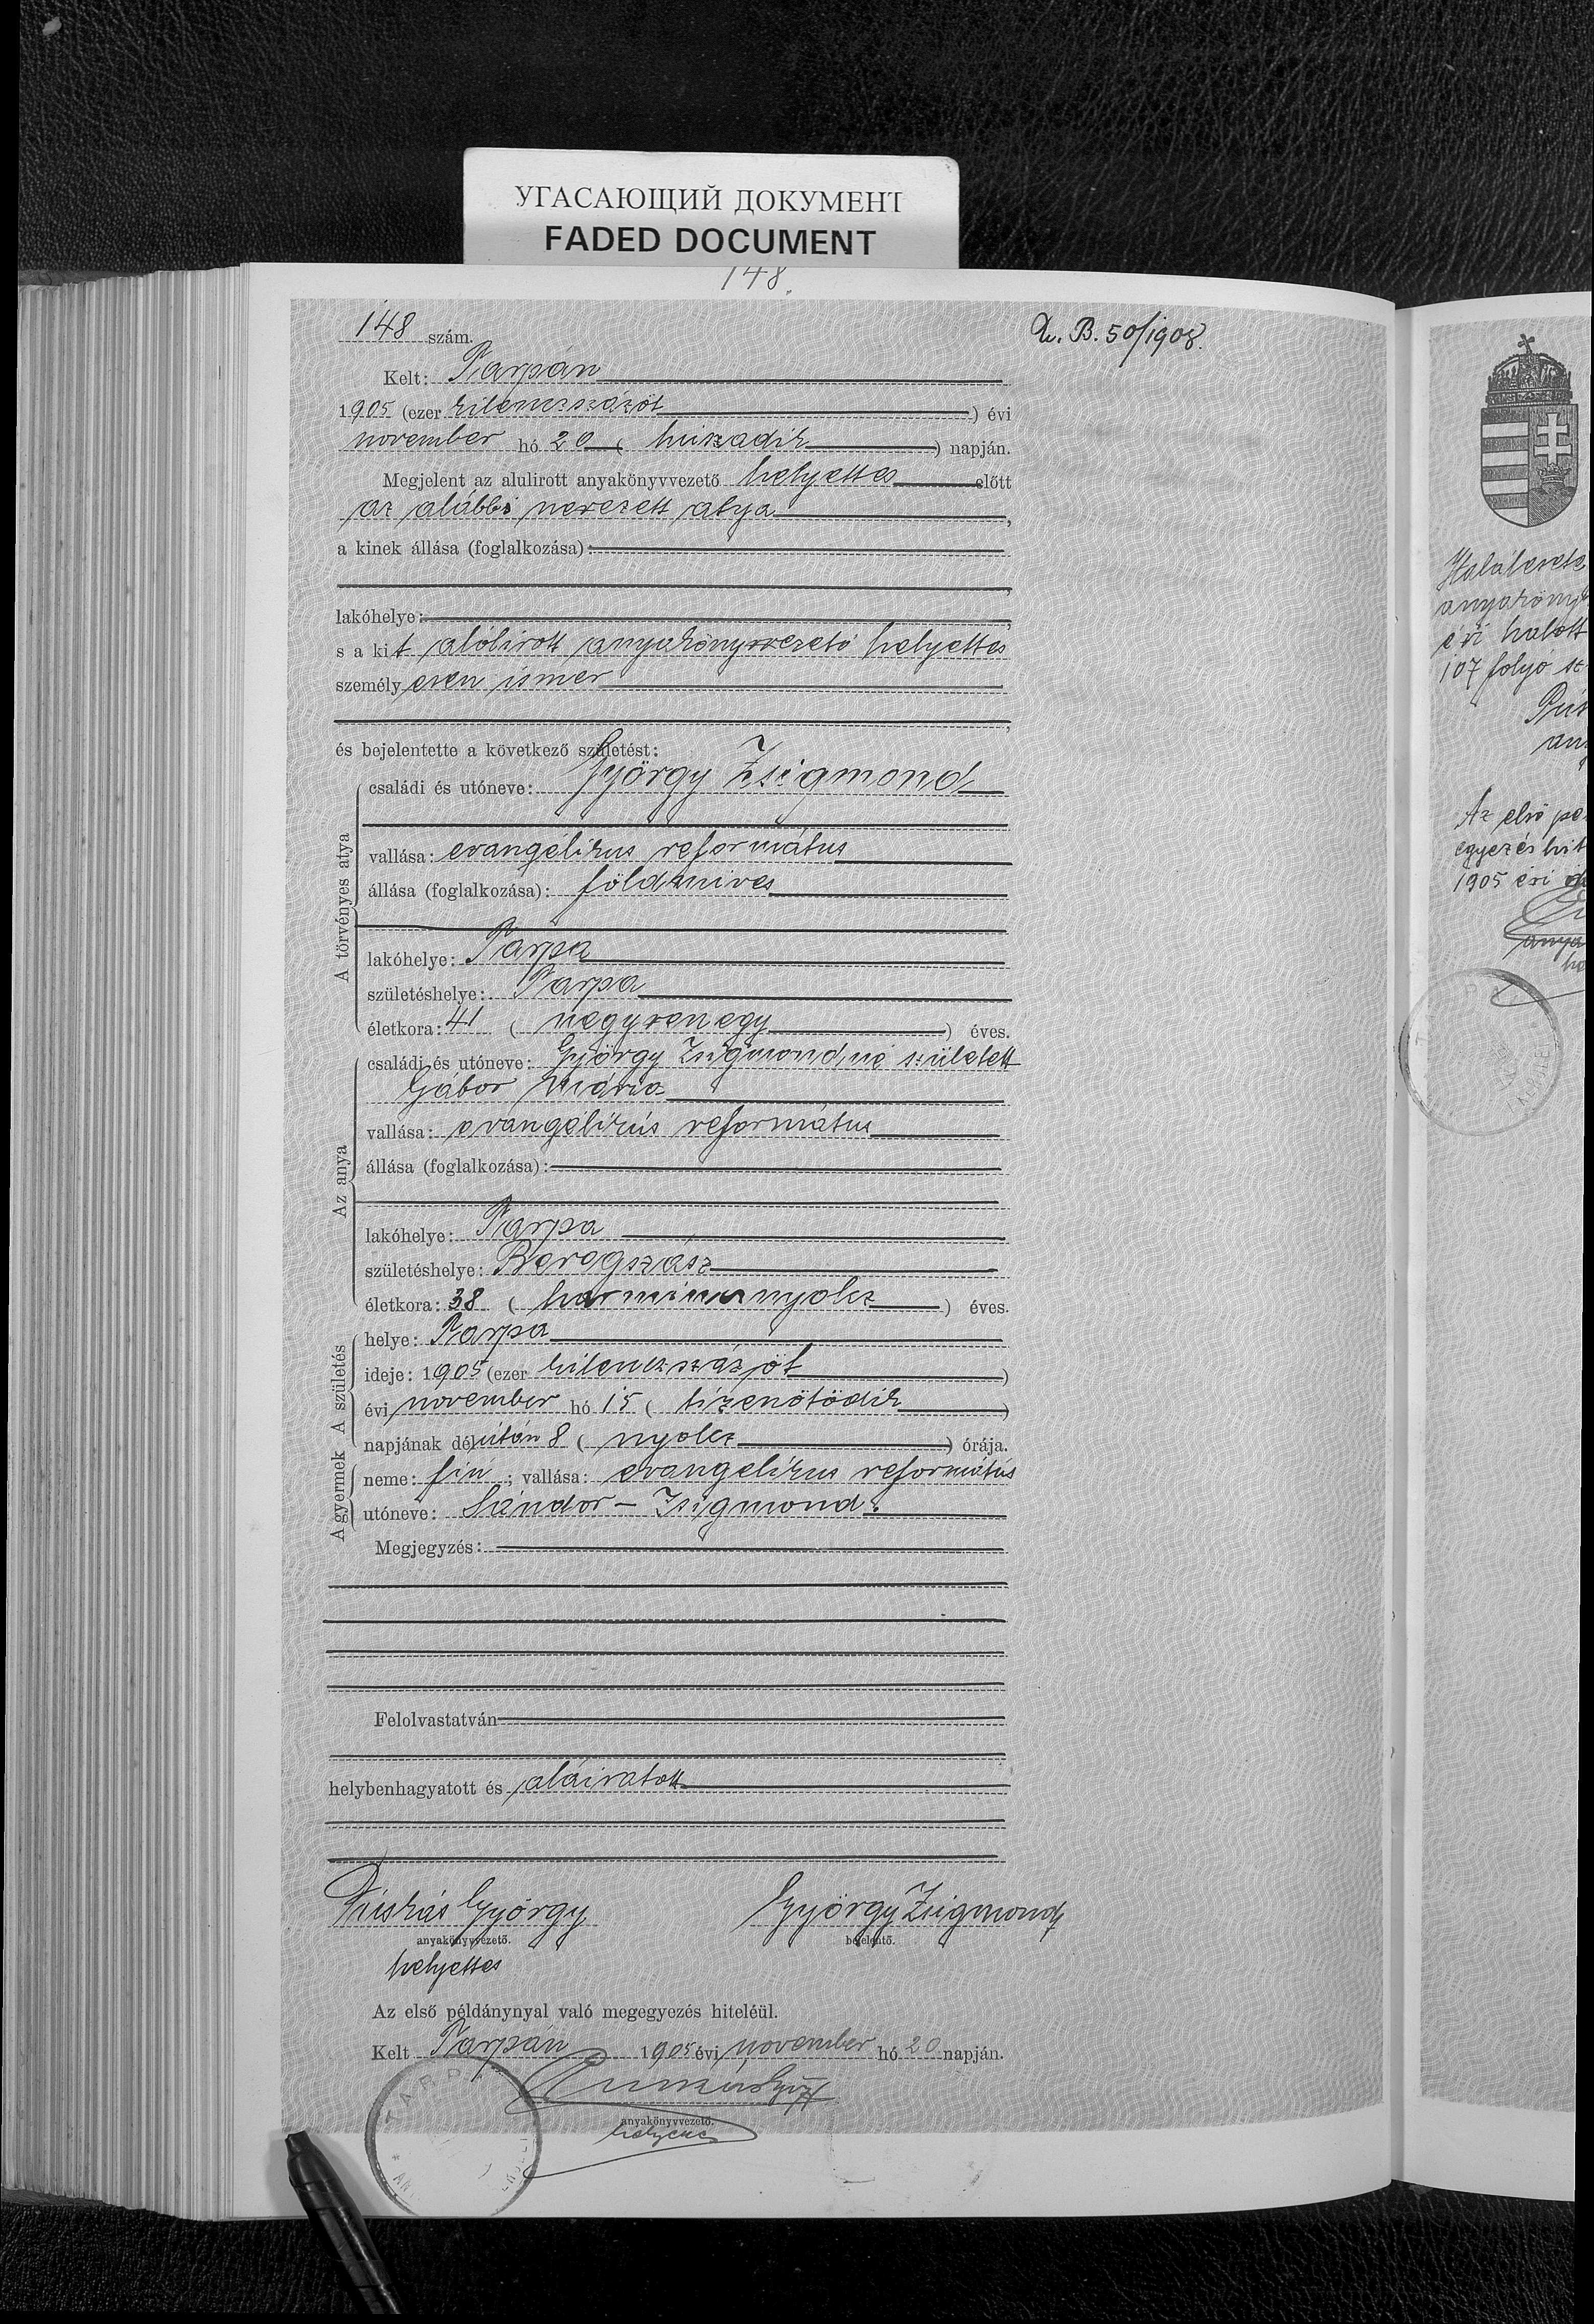 УГАСАЮЩИЙ ДОКУМЕНТ
FADED DOCUMENT
148.
148 szám.
B. 50/1908.
Kelt: Tarpán
1905 (ezer kilenczszázöt) évi
november hó 20 (huszadik) napján.
Megjelent az alulirott anyakönyvvezető helyettes előtt
az alábbi nevezett atya,
a kinek állása (foglalkozása):
lakóhelye:
s a kit alólirott anyakönyvvezető helyettes
személyesen ismer
és bejelentette a következő születést:
A törvényes atya
családi és utóneve: György Zsigmond
vallása: evangélikus református
állása (foglalkozása): földmives
lakóhelye: Tarpa
születéshelye: Tarpa
életkora: 41 (negyvenegy) éves.
Az anya
családi és utóneve: György Zsigmondné született
Gábor Mária
vallása: evangélikús református
állása (foglalkozása):
lakóhelye: Tarpa
születéshelye: Beregszász
életkora: 38 (harmincznyolcz) éves.
A születés
helye: Tarpa
ideje: 1905 (ezer kilenczszázöt)
évi november hó 15 (tizenötödik)
napjának délután 8 (nyolcz) órája.
A gyermek
neme: fiú; vallása: evangelikus református
utóneve: Sándor - Zsigmond.
Megjegyzés:
Felolvastatván
helybenhagyatott és aláiratott
Púskás György
György Zsigmond
anyakönyvvezető.
bejelentő.
helyettes
Az első példánynyal való megegyezés hiteléül.
Kelt Tarpán 1905 évi november hó 20 napján.
anyakönyvvezető.
helyettes
TARPA
Halálesete
évi halott
107 folyó sz
Az első pé
egyezés hit
1905 évi
anya